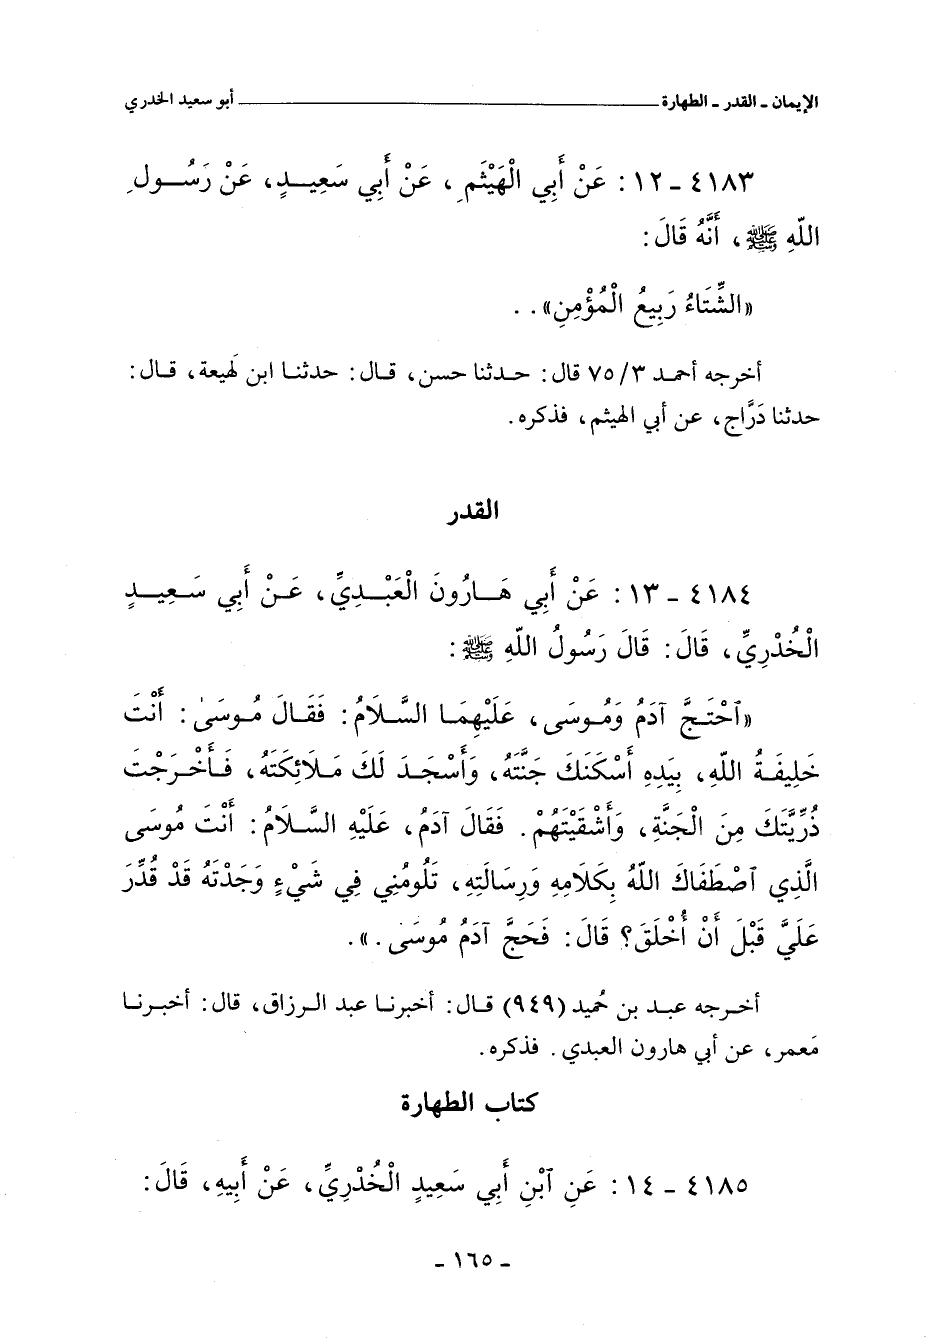 الإيمان ـ القدر ـ الطهارة ـــــــــــــــــــــــــــــــــ أبو سعيد الخدري
٤١٨٣ ـ ١٢ : عَنْ أَبِي الْهَيْثَمِ ، عَنْ أَبِي سَعِيدٍ، عَنْ رَسُولِ
اللّهِ ﷺ ، أَنَّهُ قَالَ:
«الشِّتَاءُ رَبِيعُ الْمُؤْمِنِ» . .
أخرجه أحمد ٣/ ٧٥ قال: حدثنا حسن، قال: حدثنا ابن لَهيعة، قال:
حدثنا دَرَّاج، عن أبي الهيثم، فذكره.
القدر
٤١٨٤ ـ ١٣ : عَنْ أَبِي هَارُونَ الْعَبْدِيِّ، عَنْ أَبِي سَعِيدٍ
الْخُدْرِيِّ، قَالَ: قَالَ رَسُولُ اللّهِ ﷺ :
«آحْتَجَّ آدَمُ وَمُوسَى، عَلَيْهِمَا السَّلَامُ: فَقَالَ مُوسَىٰ: أَنْتَ
خَلِيفَةُ اللّهِ، بِيَدِهِ أَسْكَنَكَ جَنَّتَهُ، وَأَسْجَدَ لَكَ مَلَائِكَتَهُ، فَأَخْرَجْتَ
ذُرِّيَّتَكَ مِنَ الْجَنَّةِ، وَأَشْقَيْتَهُمْ. فَقَالَ آدَمُ، عَلَيْهِ السَّلَامُ: أَنْتَ مُوسَى
الَّذِي آصْطَفَاكَ اللّهُ بِكَلَامِهِ وَرِسَالَتِهِ، تَلُومُنِي فِي شَيْءٍ وَجَدْتَهُ قَدْ قُدِّرَ
عَلَيَّ قَبْلَ أَنْ أُخْلَقَ؟ قَالَ: فَحَجَّ آدَمُ مُوسَىٰ.».
أخرجه عبد بن حُميد (٩٤٩) قال: أخبرنا عبد الرزاق، قال: أخبرنا
مَعمر، عن أبي هارون العبدي. فذكره.
كتاب الطهارة
٤١٨٥ ـ ١٤ : عَنِ آبْنِ أَبِي سَعِيدٍ الْخُدْرِيِّ، عَنْ أَبِيهِ، قَالَ:
ـ ١٦٥ ـ